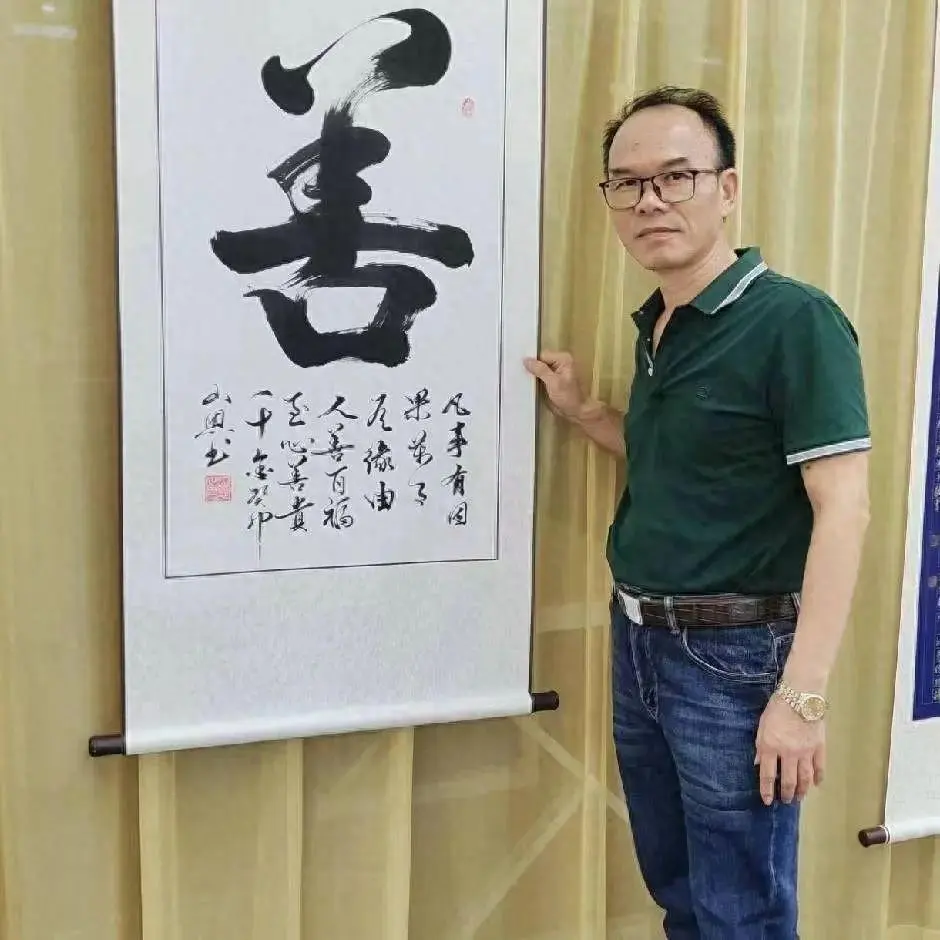 善
凡事有因
果萬事
有緣由
人善百福
至心善貴
千金癸卯
書